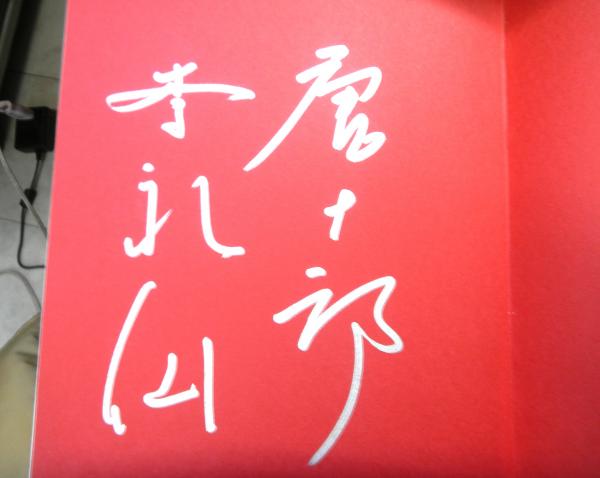 唐十郎
李礼仙